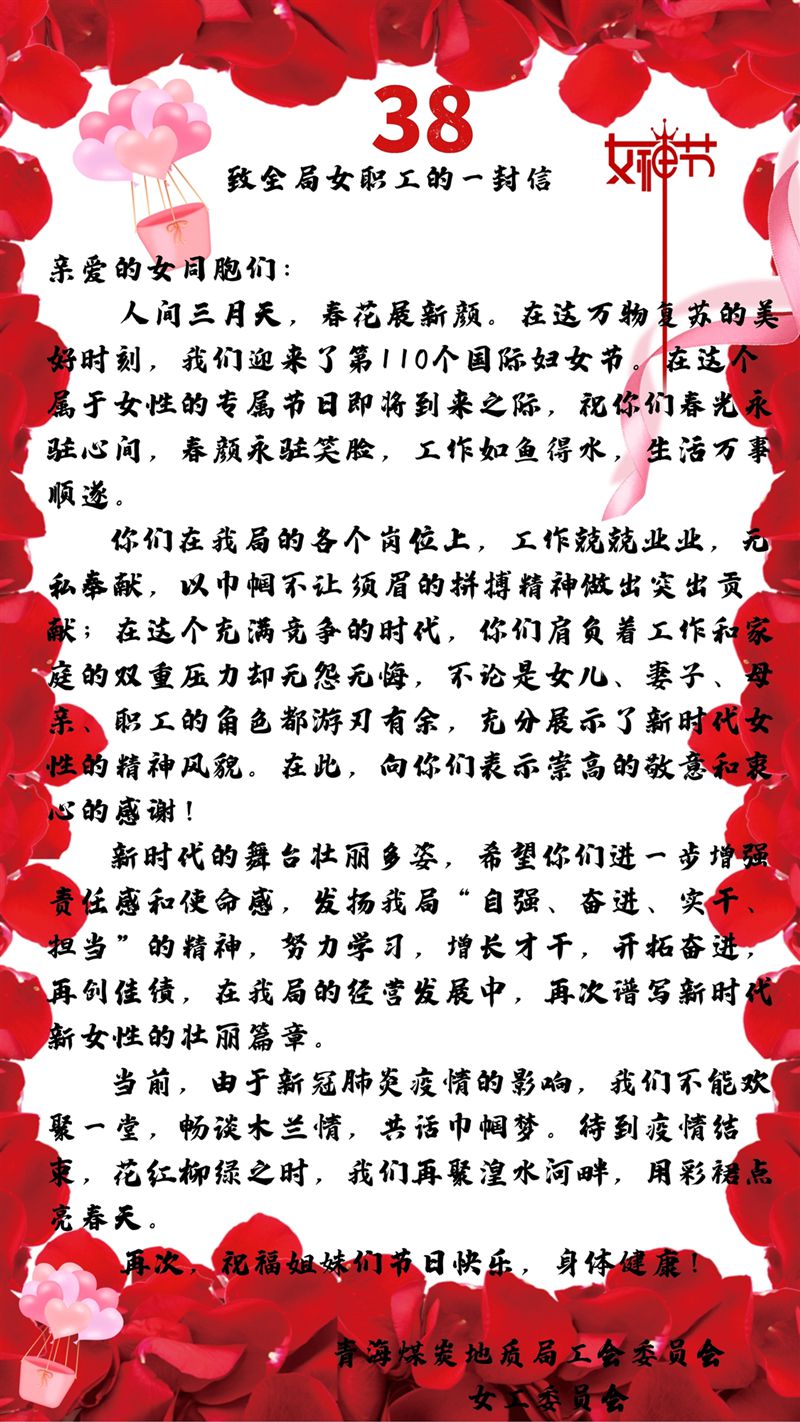 38
女神节
致全局女职工的一封信
亲爱的女同胞们：
人间三月天，春花展新颜。在这万物复苏的美
好时刻，我们迎来了第110个国际妇女节。在这个
属于女性的专属节日即将到来之际，祝你们春光永
驻心间，春颜永驻笑脸，工作如鱼得水，生活万事
顺遂。
你们在我局的各个岗位上，工作兢兢业业，无
私奉献，以巾帼不让须眉的拼搏精神做出突出贡
献；在这个充满竞争的时代，你们肩负着工作和家
庭的双重压力却无怨无悔，不论是女儿、妻子、母
亲、职工的角色都游刃有余，充分展示了新时代女
性的精神风貌。在此，向你们表示崇高的敬意和衷
心的感谢！
新时代的舞台壮丽多姿，希望你们进一步增强
责任感和使命感，发扬我局“自强、奋进、实干、
担当”的精神，努力学习，增长才干，开拓奋进，
再创佳绩，在我局的经营发展中，再次谱写新时代
新女性的壮丽篇章。
当前，由于新冠肺炎疫情的影响，我们不能欢
聚一堂，畅谈木兰情，共话巾帼梦。待到疫情结
束，花红柳绿之时，我们再聚湟水河畔，用彩裙点
亮春天。
再次，祝福姐妹们节日快乐，身体健康！
青海煤炭地质局工会委员会
女工委员会